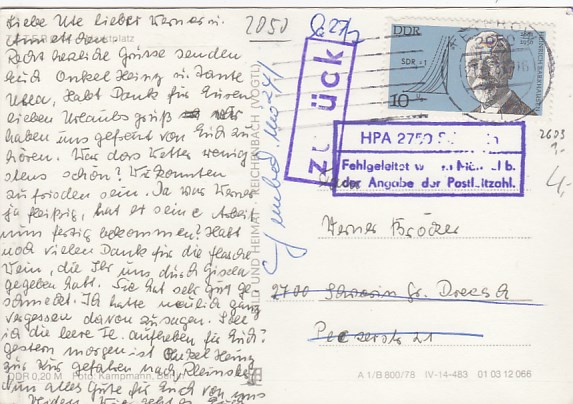 Liebe Ute lieber Werner u.
Recht herzliche Grüsse senden
Euch Onkel Heinz u. Tante
Ulla, Habt Dank für Euren
lieben Urlaubs gruß Wir
haben uns gefreut von Euch zu
hören. War das Wetter wenig
stens schön? Wir konnten
zu frieden sein. Ja war Werner
ja fleißig, hat er seine Arbeit
nun fertig bekommen? Habt
noch vielen Dank für die flasche
Wein, die Ihr uns durch Gisela
gegeben habt. Sie hat sehr gut ge-
schmeckt. Ich hatte neulich ganz
vergessen davon zu sagen. Soll
ich die leere Fl. aufheben für Euch?
gestern morgen ist Onkel Heinz
zur Kur gefahren nach
nun alles Gute für Euch von uns
DDR 0,20 M Foto: Kampmann,
BILD UND HEIMAT REICHENBACH (VOGTL)
2050
zurück
DDR
10
HPA 2750
Fehlgeleitet
der Angabe der Postleitzahl.
2603
1,-
4,-
Werner Bröcker
2700 Schwerin Gr. Dreesch
21
A 1/B 800/78 IV-14-483 01 03 12 066